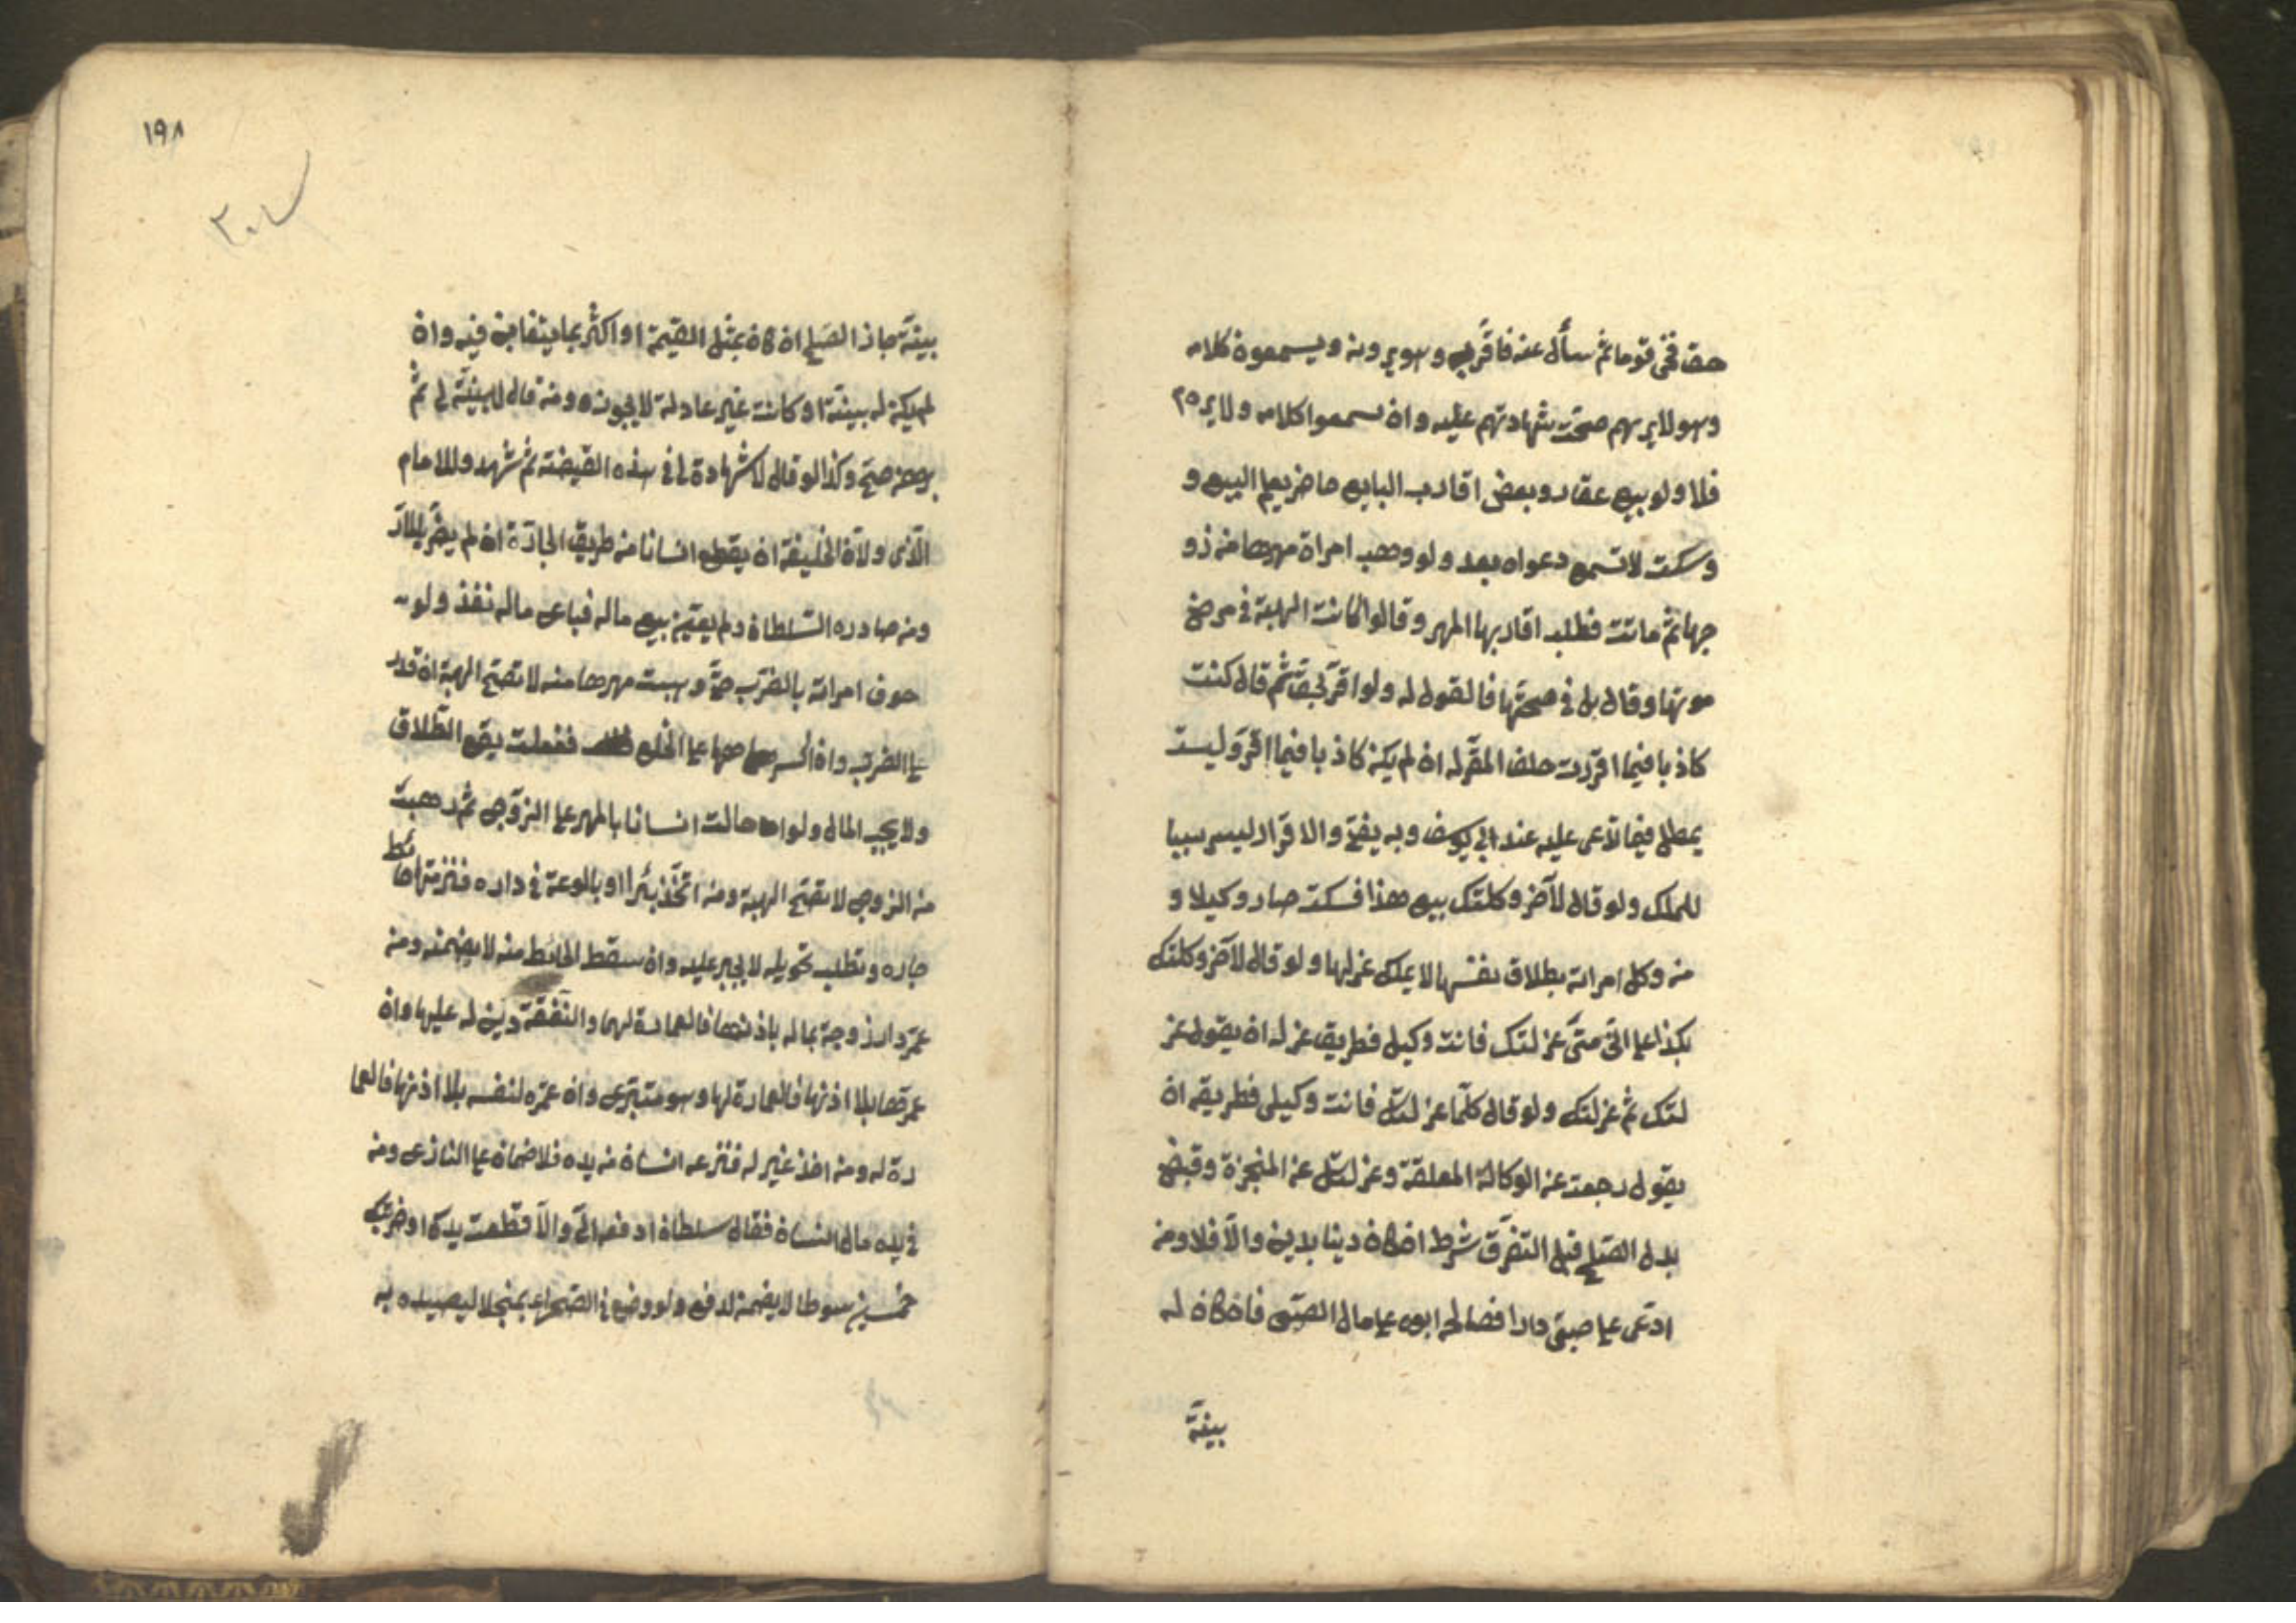 حق فخبى قوما ثم سأل عنه فاقر به وهو يرونه ويسمعون كلامه
وهو لا يرىهم صحت شهادتهم عليه وان سمعوا كلامه ولا يره
فلا ولو بيع عقار وبعض اقارب البايع حاضر يعلم البيع و
وسكت لا تسمع دعواه بعد ولو وهب امراة مهرها من زو
جها ثم ماتت فطلب اقاربها المهر وقالوا كانت الهبة في مرض
موتها وقال بل في صحتها فالقول له ولو اقر بحق ثم قال كنت
كاذبا فيما اقررت حلف المقر له ان لم يكن كاذبا فيما اقر وليست
بمطل فيما تدعى عليه عند ابي يوسف وبه يفتى والاقرار ليس سببا
للملك ولو قال لآخر وكلتك ببيع هذا فسكت صار وكيلا و
من وكل امراته بطلاق نفسها لا يملك عزلها ولو قال لآخر وكلتك
بكذا على انى متى عزلتك فانت وكيلى فطريق عزله ان يقول عز
لتك ثم عزلتك ولو قال كلما عزلتك فانت وكيلى فطريقه ان
يقول رجعت عن الوكالة المعلقة وعزلتك عن المنجزة وقبض
بدل الصلح قبل التفرق شرط ان كان دينا بدين والا فلا ومن
ادعى على صبى دارا فصالحه ابوه على مال الصبى فان كان له
بينة
١٩٨
بينة جاز الصلح ان كان بمثل القيمة او اكثر بما يتغابن فيه وان
لم يكن له بينة او كانت غير عادلة لا يجوز ومن قال لا بينة لى ثم
برهن صح وكذا لو قال لا شهادة لى في هذه القضية ثم شهد وللامام
الذى ولاه الخليفة ان يقطع انسانا من طريق الجادة ان لم يضر بالمارة
ومن صادره السلطان ولم يعين بيع ماله فباع ماله نفذ ولو
خوف امراته بالضرب حتى وهبت مهرها منه لا تصح الهبة ان قدر
على الضرب وان اكرهها على الخلع ففعلت يقع الطلاق
ولا يجب المال ولو احالت انسانا بالمهر على الزوج ثم وهبت
من الزوج لا تصح الهبة ومن اتخذ بئرا او بالوعة في داره فنز منها حائط
جاره وطلب تحويله لا يجبر عليه وان سقط الحائط منه لا يضمنه ومن
عمر دار زوجة بماله باذنها فالعمارة لها والنفقة دين له عليها وان
عمرها بلا اذنها فالعمارة لها وهو متبرع وان عمره لنفسه بلا اذنها فالعما
رة له ومن اخذ غير له فنزعه انسان من يده فلا ضمان على النازع ومن
في يده مال انسان فقال سلطان ادفعه الى والا قطعت يدك او ضربتك
خمسين سوطا لا يضمن لو دفع ولو وضع في الصحراء منجلا ليصيد به